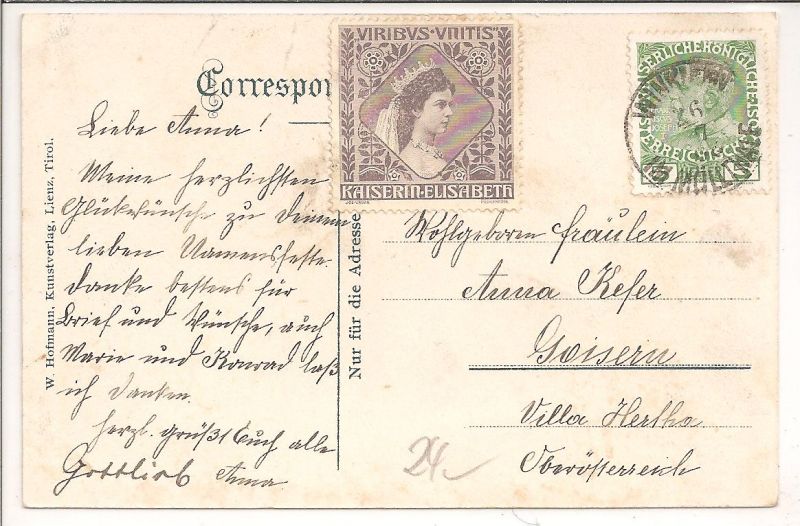 Correspon
VIRIBVS·VNITIS
KAISERIN·ELISABETH
KAISERLICHE KÖNIGLICHE
ÖSTERREICHISCHE
WINKLERN
26
MÖLLTHALE
Liebe Anna!
Meine herzlichsten
Glückwünsche zu Deinem
lieben Namensfeste.
Danke bestens für
Brief und Wünsche, auch
Marie und Konrad laß
ich danken.
Herzl. grüßt Euch alle
Gottlieb Anna
W. Hofmann, Kunstverlag, Lienz, Tirol.
Nur für die Adresse
Wohlgeboren Fräulein
Anna Kefer
Goisern
Villa Hertha
Oberösterreich
24.-